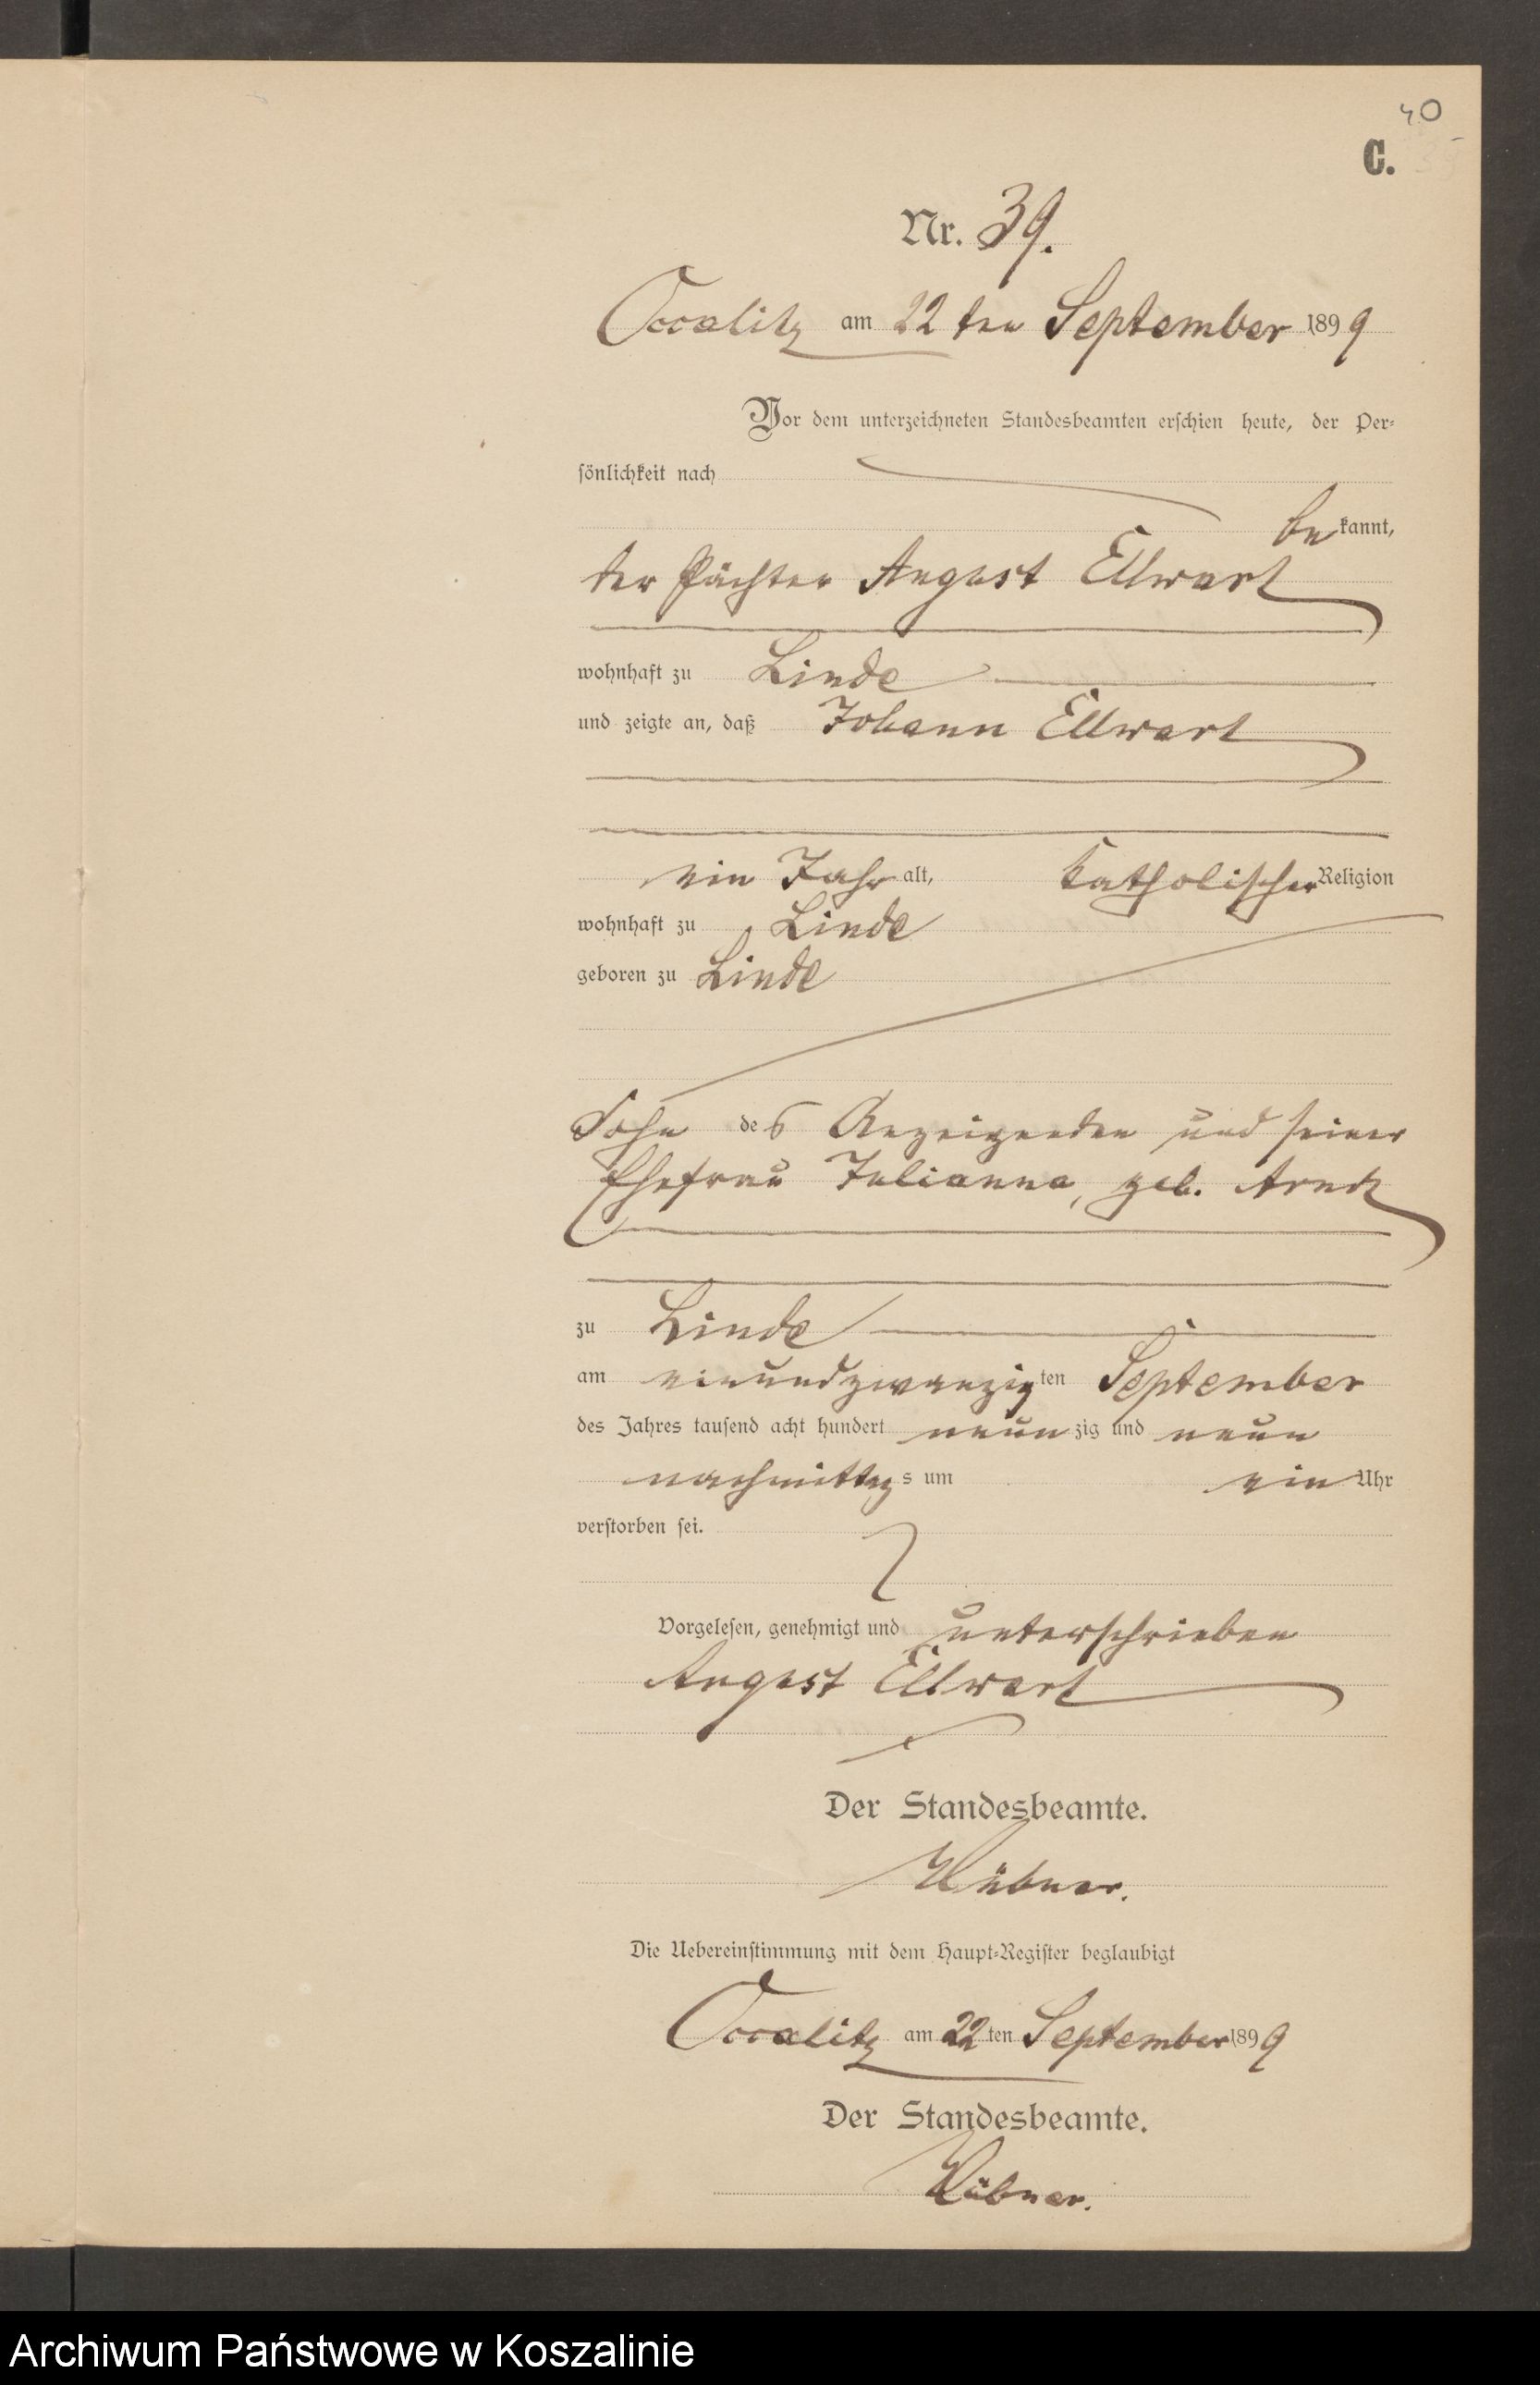 40
C.
Nr. 39.
Occalitz am 22ten September 1899
Vor dem unterzeichneten Standesbeamten erschien heute, der Per-
sönlichkeit nach
bekannt,
der Pächter August Ellwart
wohnhaft zu Linde
und zeigte an, daß Johann Ellwart
ein Jahr alt, katholischer Religion
wohnhaft zu Linde
geboren zu Linde
Sohn des Anzeigenden und seiner
Ehefrau Julianna, geb. Arndt
zu Linde
am einundzwanzigten September
des Jahres tausend acht hundert neunzig und neun
nachmittags um ein Uhr
verstorben sei.
Vorgelesen, genehmigt und unterschrieben
August Ellwart
Der Standesbeamte.
Hübner.
Die Uebereinstimmung mit dem Haupt-Register beglaubigt
Occalitz am 22ten September 1899
Der Standesbeamte.
Hübner.
Archiwum Państwowe w Koszalinie